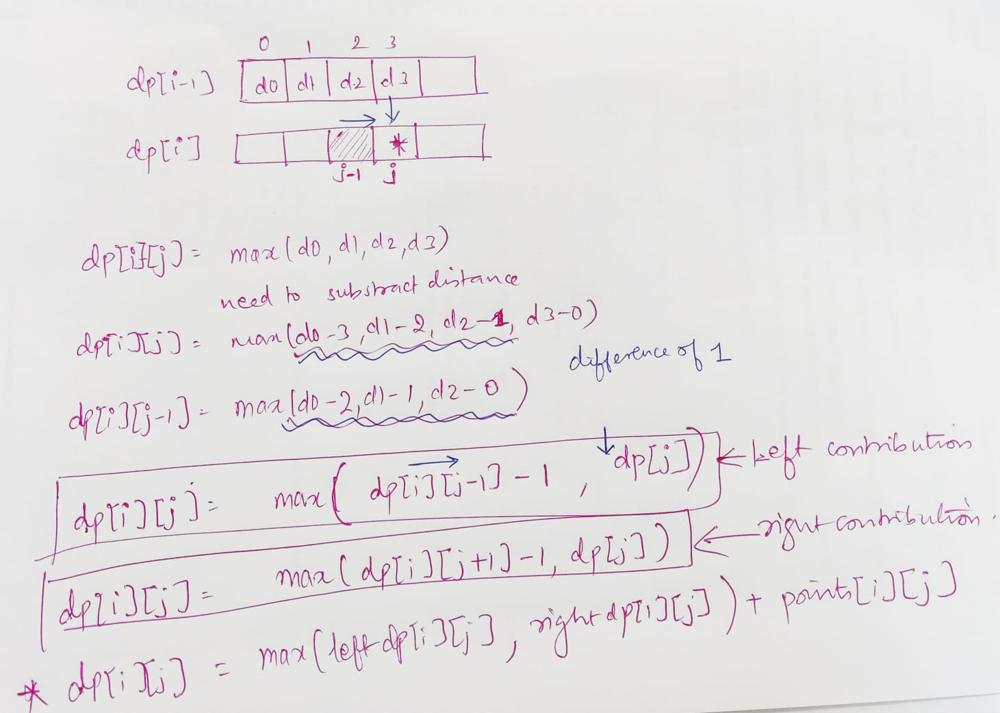 0 1 2 3
dp[i-1] d0 d1 d2 d3
dp[i] *
j-1 j
dp[i][j] = max(d0, d1, d2, d3)
need to substract distance
dp[i][j] = max(d0-3, d1-2, d2-1, d3-0)
difference of 1
dp[i][j-1] = max(d0-2, d1-1, d2-0)
dp[i][j] = max( dp[i][j-1] - 1 , dp[j]) ← Left contribution
dp[i][j] = max( dp[i][j+1]-1, dp[j]) ← right contribution.
* dp[i][j] = max(left dp[i][j], right dp[i][j]) + points[i][j]